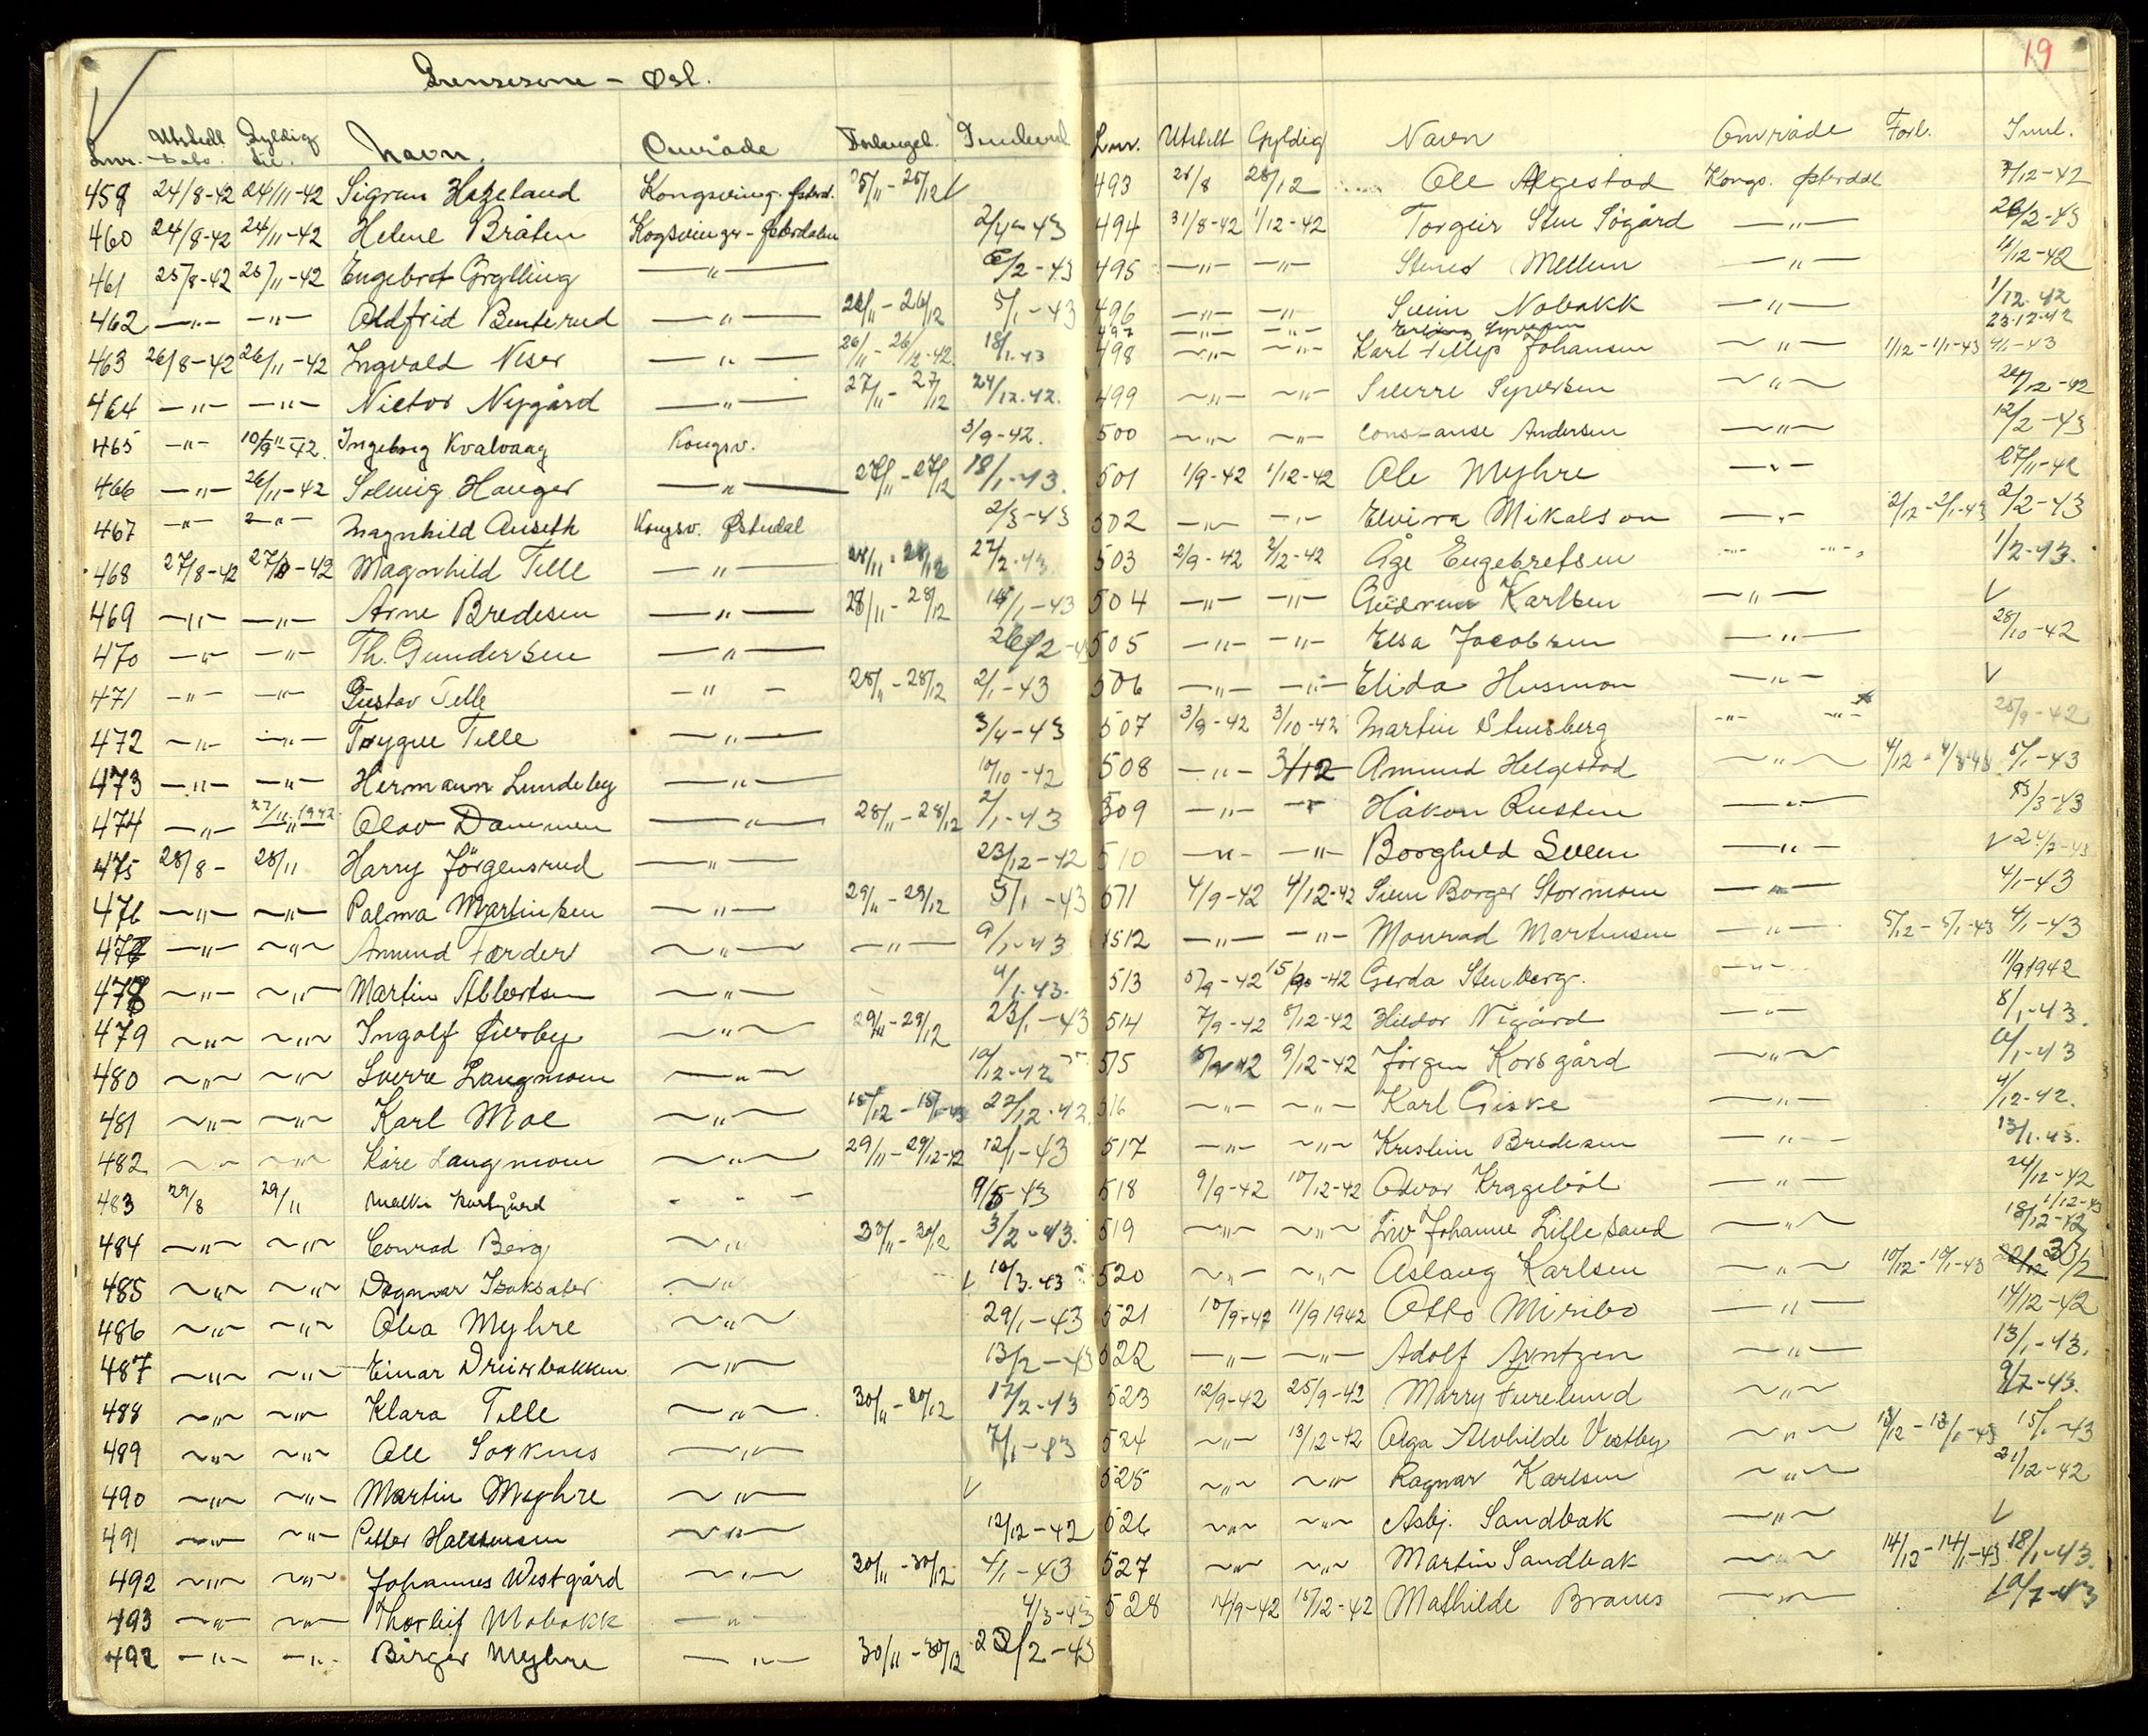 Grensesone - Øst.
Lnr. Utstedt dato. Gyldig til. Navn. Område Forlenget. Innlevert
459 24/8-42 24/11-42 Sigrun Hageland Kongsving. Østerd. 25/11-25/12 V
460 24/8-42 24/11-42 Helene Bråten Kogsvinger-Østerdalen 2/4-43
461 25/8-42 25/11-42 Engebret Grylling —"— 6/2-43
462 —"— —"— Oldfrid Benterud —"— 26/11-26/12 5/1-43
463 26/8-42 26/11-42 Ingvald Neser —"— 26/11-26/12-42. 18/1.43
464 —"— —"— Victor Nygård —"— 27/11-27/12 24/12.42.
465 —"— 10/9-42. Ingeborg Kvalvaag Kongsv. 3/9-42.
466 —"— 26/11-42 Solveig Hauger —"— 27/11-27/12 18/1-43.
467 —"— —"— Magnhild Auseth Kongsv. Østerdal 2/3-43
468 27/8-42 27/11-42 Magnhild Tille —"— 28/11-28/12 27/2-43
469 —"— —"— Arne Bredesen —"— 28/11-28/12 15/1-43
470 —"— —"— Th. Gundersen —"— 26/2-43
471 —"— —"— Gustav Tille —"— 28/11-28/12 2/1-43
472 —"— —"— Trygve Tille —"— 3/4-43
473 —"— —"— Hermann Lundeby —"— 10/10-42
474 —"— 27/11.1942. Olav Dammen —"— 28/11-28/12 2/1-43
475 28/8- 28/11 Harry Jörgensrud —"— 23/12-42
476 —"— —"— Palma Martinsen —"— 29/11-29/12 5/1-43
477 —"— —"— Amund Førder —"— —"— 9/1-43
478 —"— —"— Martin Albertsen —"— 4/1-43.
479 —"— —"— Ingolf Øiesby —"— 29/11-29/12 23/1-43
480 —"— —"— Sverre Langmoen —"— 10/12-42
481 —"— —"— Karl Moe —"— 15/12-15/1-43 22/12-42.
482 —"— —"— Kåre Langmoen —"— 29/11-29/12-42 12/1-43
483 29/8 29/11 Korsgård —"— 9/5-43
484 —"— —"— Conrad Berg —"— 30/11-30/12 3/2-43.
485 —"— —"— Dagmar Isaksæter —"— V 10/3.43
486 —"— —"— Olea Myhre —"— 29/1-43
487 —"— —"— Einar Drivsbakken —"— 13/2-43
488 —"— —"— Klara Tille —"— 30/11-30/12 17/2-43
489 —"— —"— Ole Sorknes —"— 7/1-43
490 —"— —"— Martin Myhre —"— V
491 —"— —"— Petter Halstensen —"— 12/12-42
492 —"— —"— Johannes Westgård —"— 30/11-30/12 4/1-43
493 —"— —"— Thorleif Mobakk —"— 4/3-43
492 —"— —"— Birger Myhre —"— 30/11-30/12 23/2-43
19
Lnr. Utstelt Gyldig Navn Område Forl. Innl.
493 28/8 28/12 Ole Algestad Kongs. Østerdal 3/12-42
494 31/8-42 1/12-42 Torgeir Sten Søgård —"— 26/2-43
495 —"— —"— Stener Mellem —"— 11/12-42
496 —"— —"— Svein Nobakk —"— 1/12.42
497 —"— —"— Erling Syversen 23.12.42
498 —"— —"— Karl Fillip Johansen —"— 1/12-1/1-43 4/1-43
499 —"— —"— Sverre Syversen —"— 24/12-42
500 —"— —"— Constanse Andersen —"— 12/2-43
501 1/9-42 1/12-42 Ole Myhre —"— 27/11-42
502 —"— —"— Elvira Mikalson —"— 2/12-2/1-43 2/2-43
503 2/9-42 2/12-42 Åge Engebretsen —"— —"— 1/2-43.
504 —"— —"— Gudrun Karlsen —"— V
505 —"— —"— Elsa Jacobsen —"— 28/10-42
506 —"— —"— Elida Husmon —"— V
507 3/9-42 3/10-42 Martin Stensberg —"— —"— 25/9-42
508 —"— 3/12 Amund Helgestad —"— 5/1-43
509 —"— —"— Håkon Rusten —"— 13/3-43
510 —"— —"— Borghild Sveen —"— V 24/7-43
511 4/9-42 4/12-42 Svein Borger Stormoen —"— 4/1-43
512 —"— —"— Monrad Martinsen —"— 5/12-5/1-43 4/1-43
513 5/9-42 15/90-42 Gerda Stenberg. —"— 11/9 1942
514 7/9-42 8/12-42 Hildor Nigård —"— 8/1-43.
515 8/9 42 9/12-42 Jörgen Korsgård —"— 6/1-43
516 —"— —"— Karl Giske —"— 4/12-42.
517 —"— —"— Kristin Bredesen —"— 13/1.43.
518 9/9-42 10/12-42 Odvar Kragebøl —"— 24/12-42
519 —"— —"— Liv Johanne Lillesand —"— 18/12-42 1/12-43
520 —"— —"— Aslaug Karlsen —"— 10/12-10/1-43 3/2
521 10/9-42 11/9 1942 Otto Miribo —"— 14/12-42
522 —"— —"— Adolf Arntzen —"— 13/1-43.
523 12/9-42 25/9-42 Marry Furelund —"— 9/7-43.
524 —"— 13/12-42 Olga Alvhilde Vestby —"— 13/12-13/1-43 15/1-43
525 —"— —"— Ragnar Karlsen —"— 21/12-42
526 —"— —"— Asbj. Sandbak —"— V
527 —"— —"— Martin Sandbak —"— 14/12-14/1-43 18/1-43.
528 14/9-42 15/12-42 Mathilde Branes —"— 19/7-43